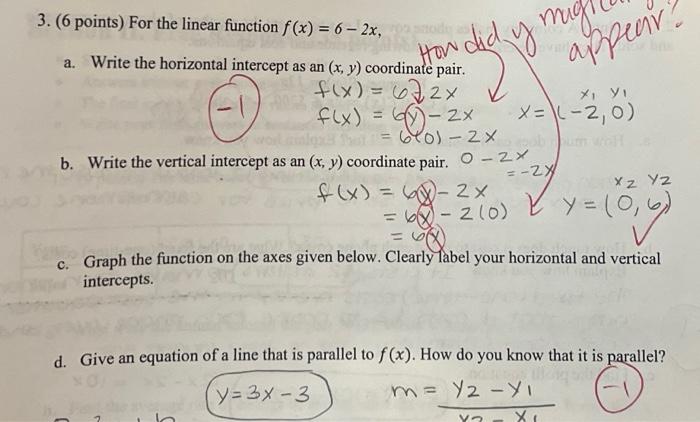 3. (6 points) For the linear function f(x) = 6 – 2x,
How did y magically appear?
a. Write the horizontal intercept as an (x, y) coordinate pair.
-1
f(x) = 6 - 2x
f(x) = 6y - 2x
= 6(0) - 2x
0 - 2x
= -2x
x₁ y₁
x = (-2, 0)
b. Write the vertical intercept as an (x, y) coordinate pair.
f(x) = 6y - 2x
= 6y - 2(0)
= 6y
x₂ y₂
y = (0, 6)
c. Graph the function on the axes given below. Clearly label your horizontal and vertical
intercepts.
d. Give an equation of a line that is parallel to f(x). How do you know that it is parallel?
y = 3x - 3
m = y₂ - y₁
x₂ - x₁
-1